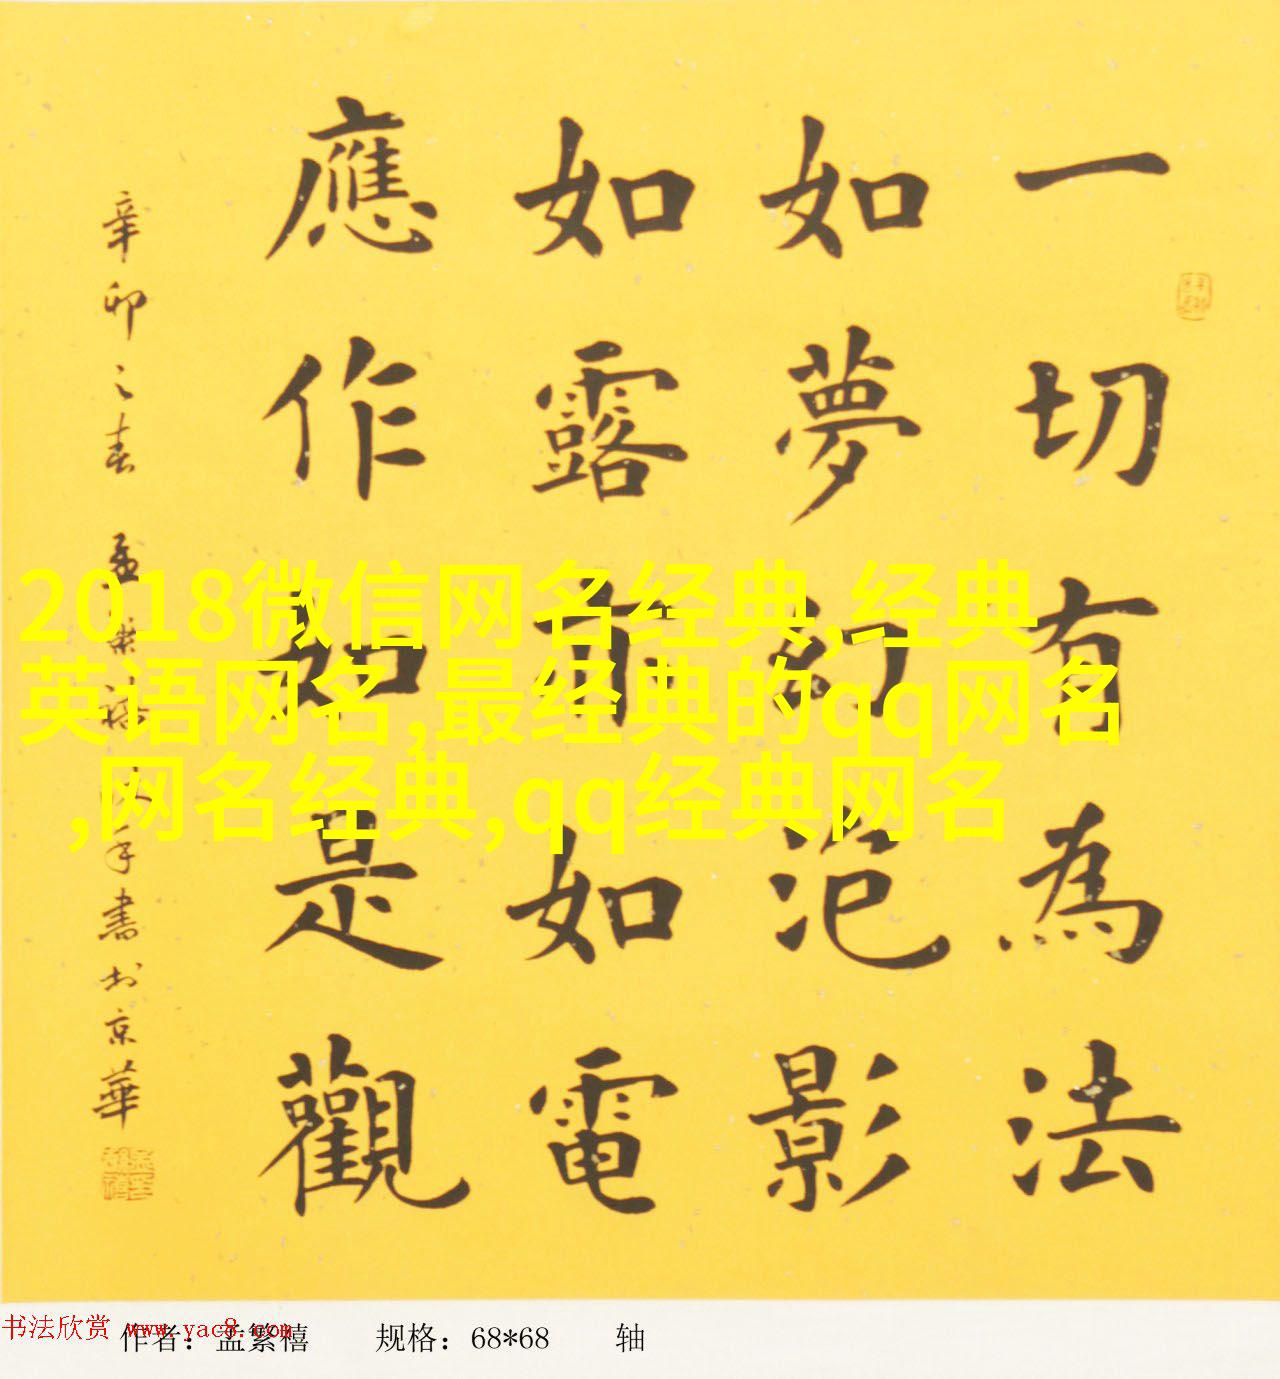 一切有為法
如夢幻泡影
如露亦如電
應作如是觀
辛卯之春 孟繁禧沐手書於京華
2018微信网名经典,经典
英语网名,最经典的qq网名
,网名经典,qq经典网名
书法欣赏 www.yac8.com
作者：孟繁禧 规格：68*68 轴